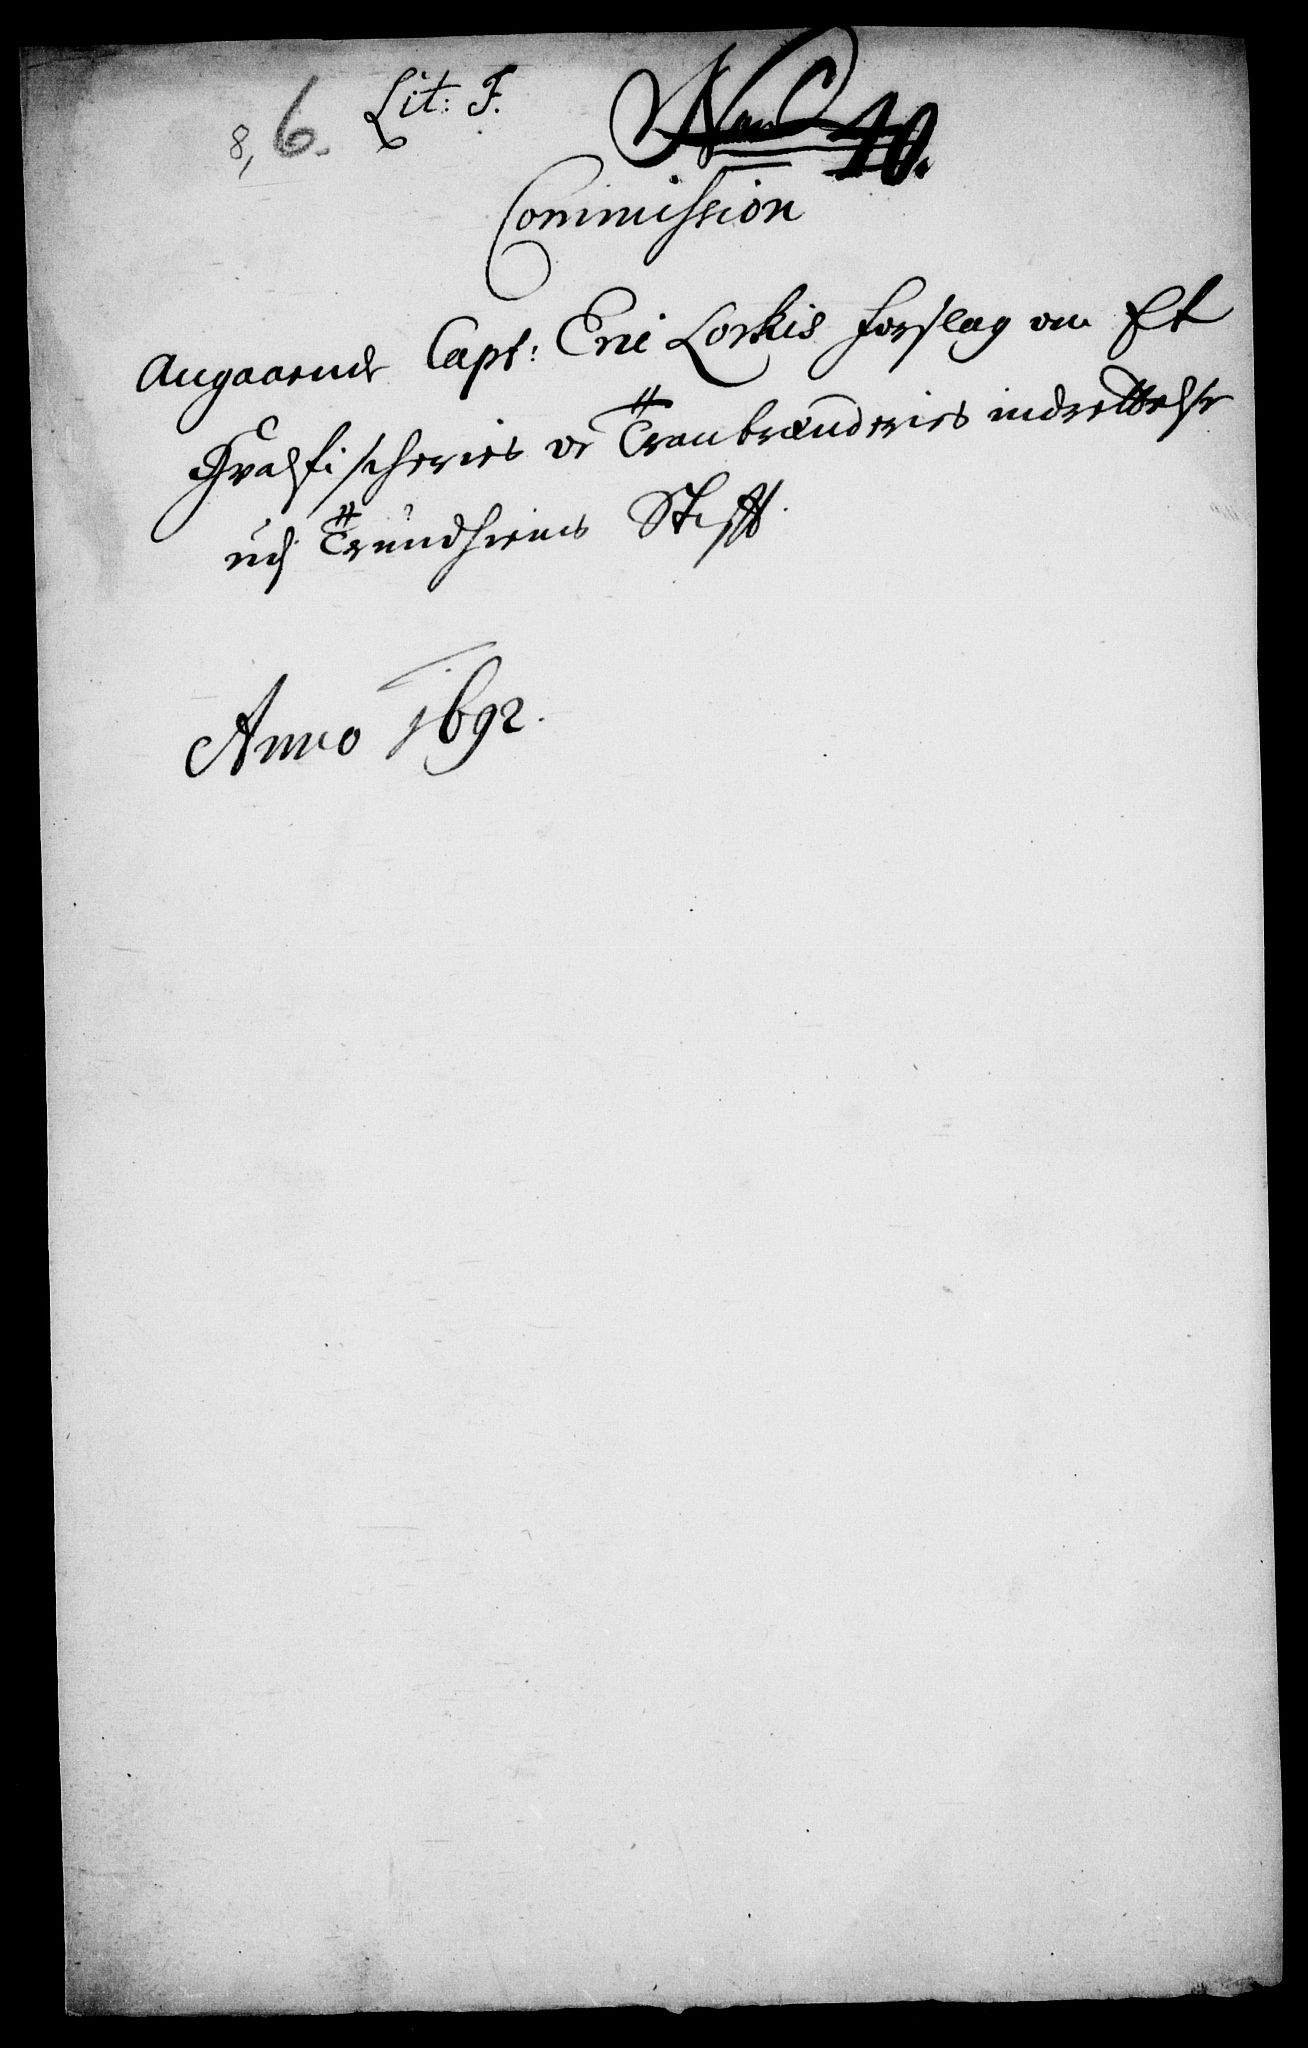 8, 6. Lit: F. Num 40.
Commission
Angaaende Capt: Eric Lorkis forslag om Et
Hvalfischeries oc Tranbrænderies indrettelse
udj Trundhiems Stifft.
Anno 1692.